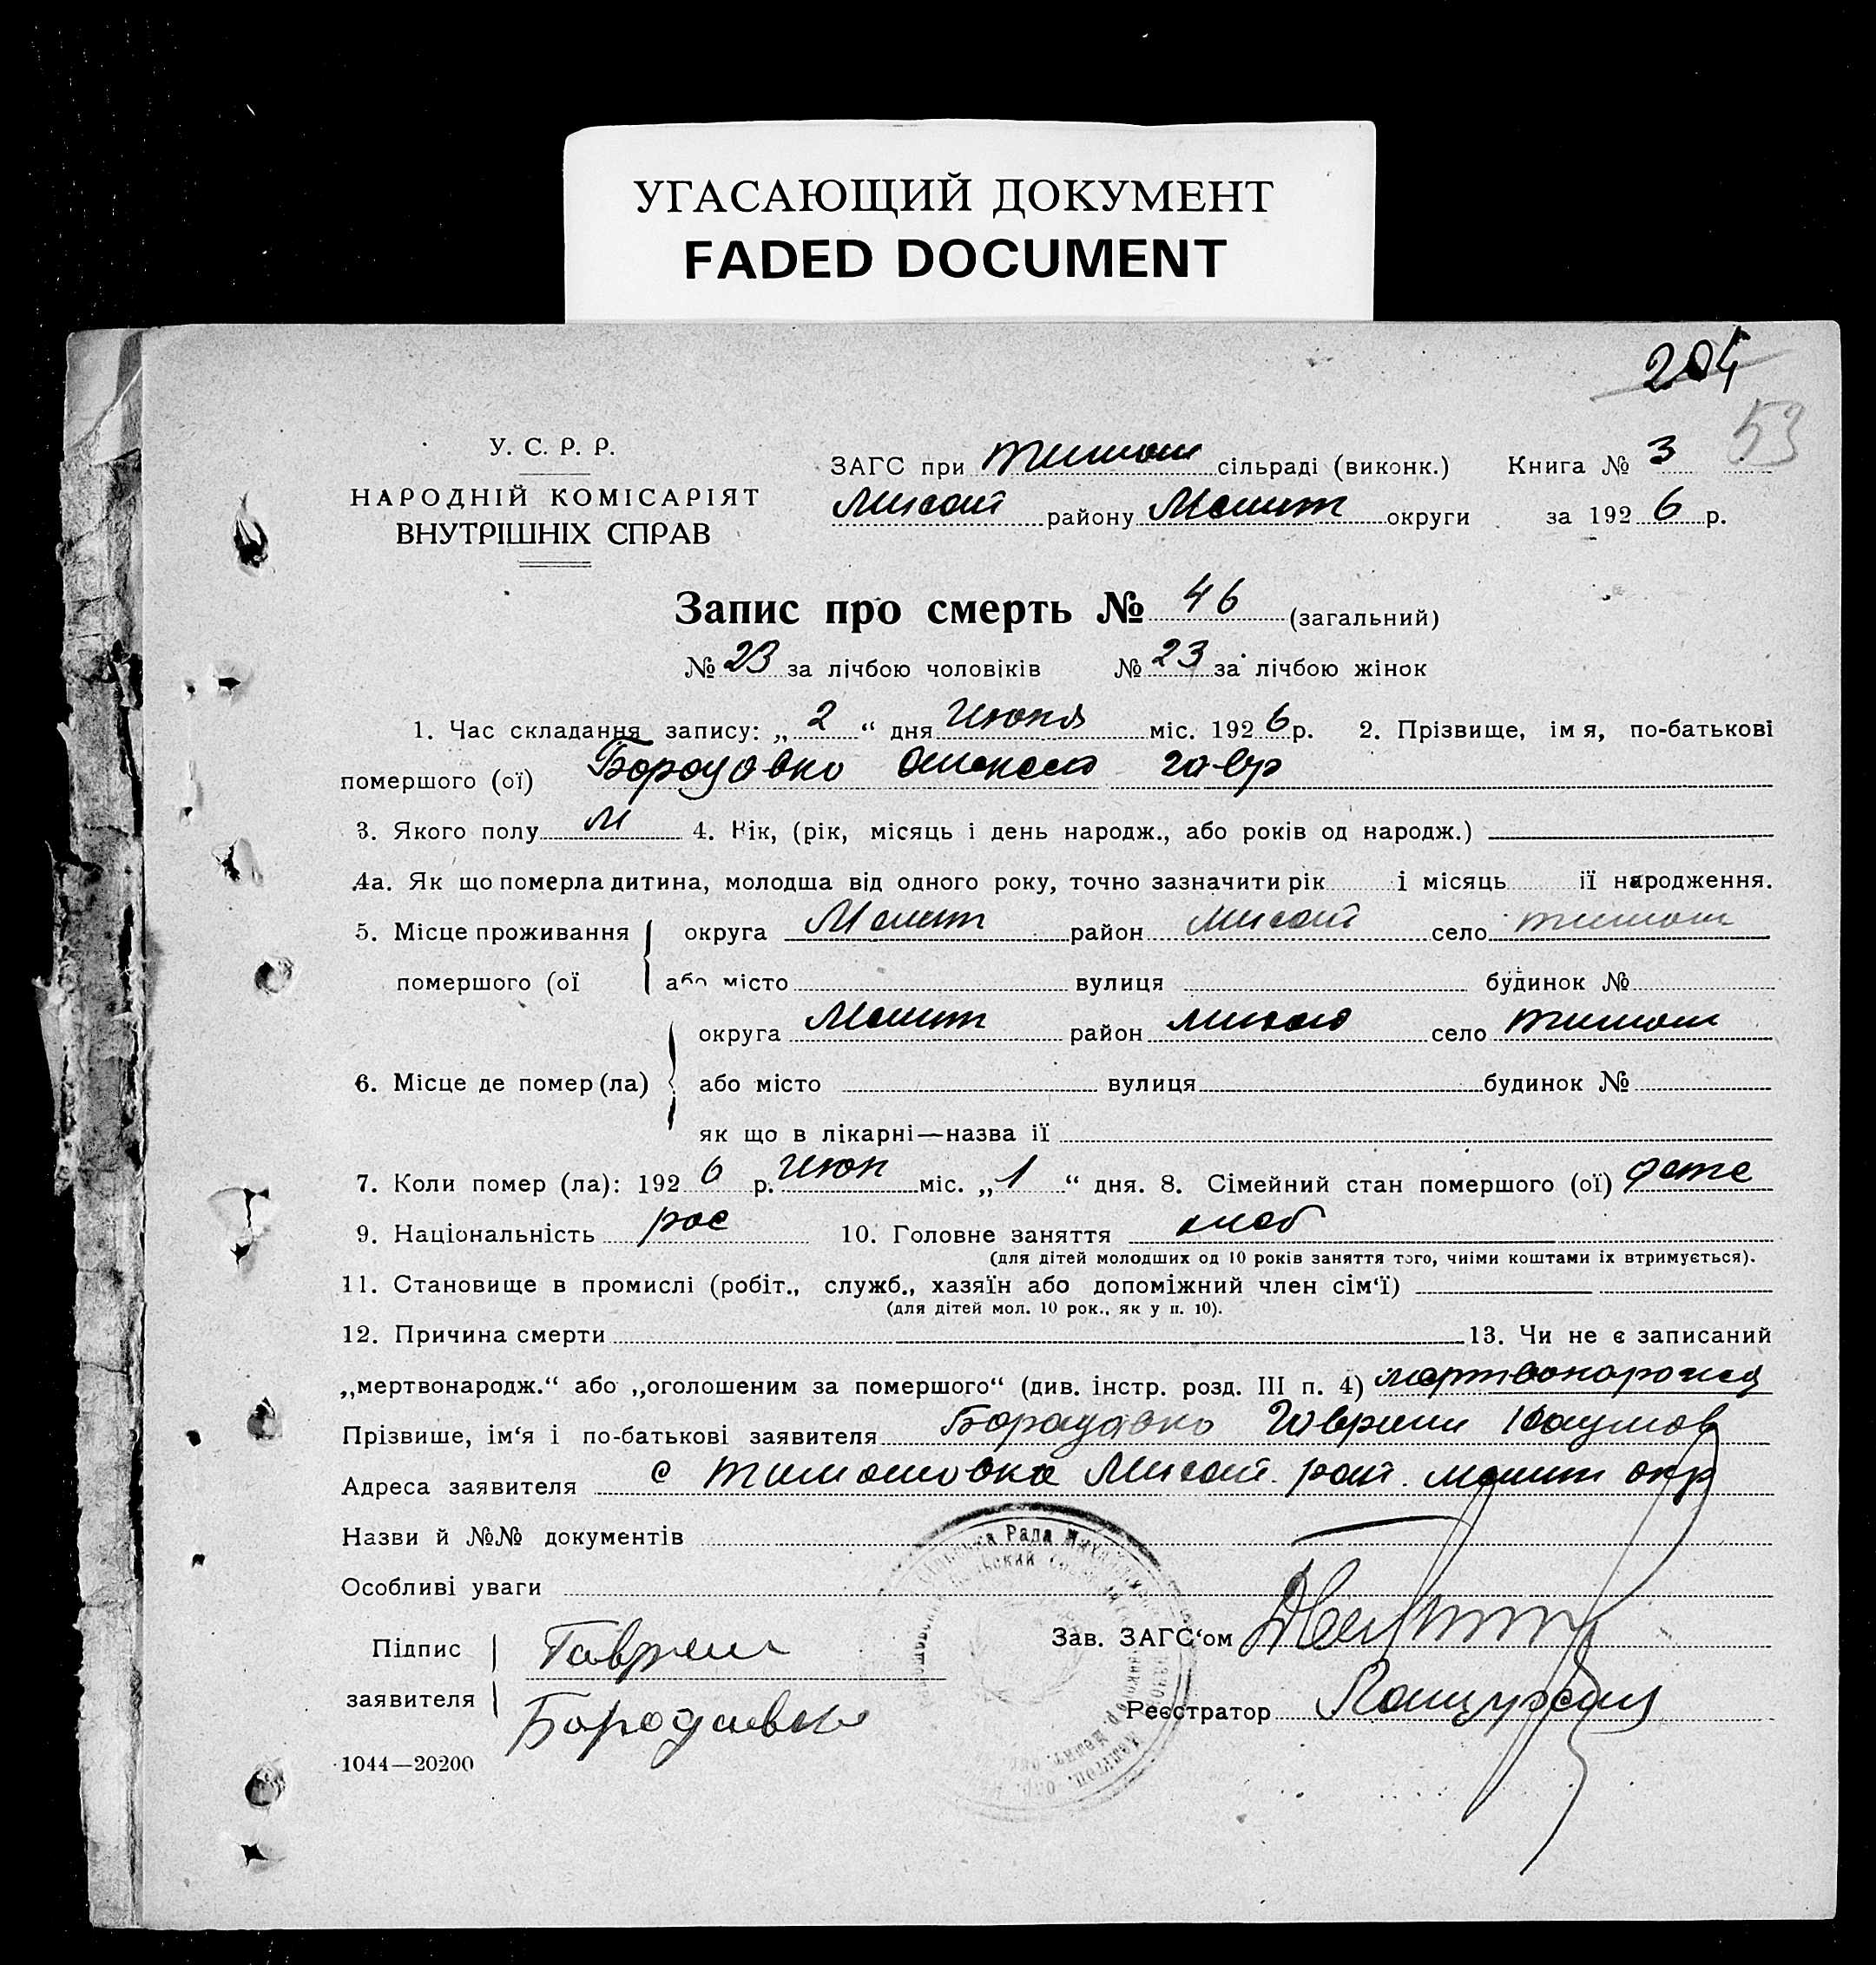 УГАСАЮЩИЙ ДОКУМЕНТ
FADED DOCUMENT
204
53
У. С. Р. Р.
НАРОДНІЙ КОМІСАРІЯТ
ВНУТРІШНІХ СПРАВ
ЗАГС при Тимош сільраді (виконк.) Книга № 3
Михай району Мелит округи за 1926 р.
Запис про смерть № 46 (загальний)
№ 23 за лічбою чоловіків № 23 за лічбою жінок
1. Час складання запису: „ 2 “ дня Июня міс. 1926 р. 2. Прізвище, імя, по-батькові
помершого (ої) Бородавко Алексей Гавр
3. Якого полу М 4. Вік, (рік, місяць і день народж., або років од народж.)
4а. Як що померла дитина, молодша від одного року, точно зазначити рік і місяць її народження.
5. Місце проживання округа Мелит район Михай село Тимош
помершого (ої або місто вулиця будинок №
округа Мелит район Михай село Тимош
6. Місце де помер (ла) або місто вулиця будинок №
як що в лікарні—назва її
7. Коли помер (ла): 1926 р. Июн міс. „ 1 “ дня. 8. Сімейний стан помершого (ої) дите
9. Національність рос 10. Головне заняття хлеб
(для дітей молодших од 10 років заняття того, чиїми коштами їх втримується).
11. Становище в промислі (робіт., служб., хазяїн або допоміжний член сім‘ї)
(для дітей мол. 10 рок., як у п. 10).
12. Причина смерти 13. Чи не є записаний
„мертвонародж.“ або „оголошеним за помершого“ (див. інстр. розд. III п. 4) мертвонарожд
Прізвише, ім‘я і по-батькові заявителя Бородавко Гаврил Наумов
Адреса заявителя с Тимошовка Михай. рай. мелит окр
Назви й №№ документів
Особливі уваги
Підпис Гаврил
заявителя Бородавко
Зав. ЗАГС‘ом
Реєстратор
1044—20200